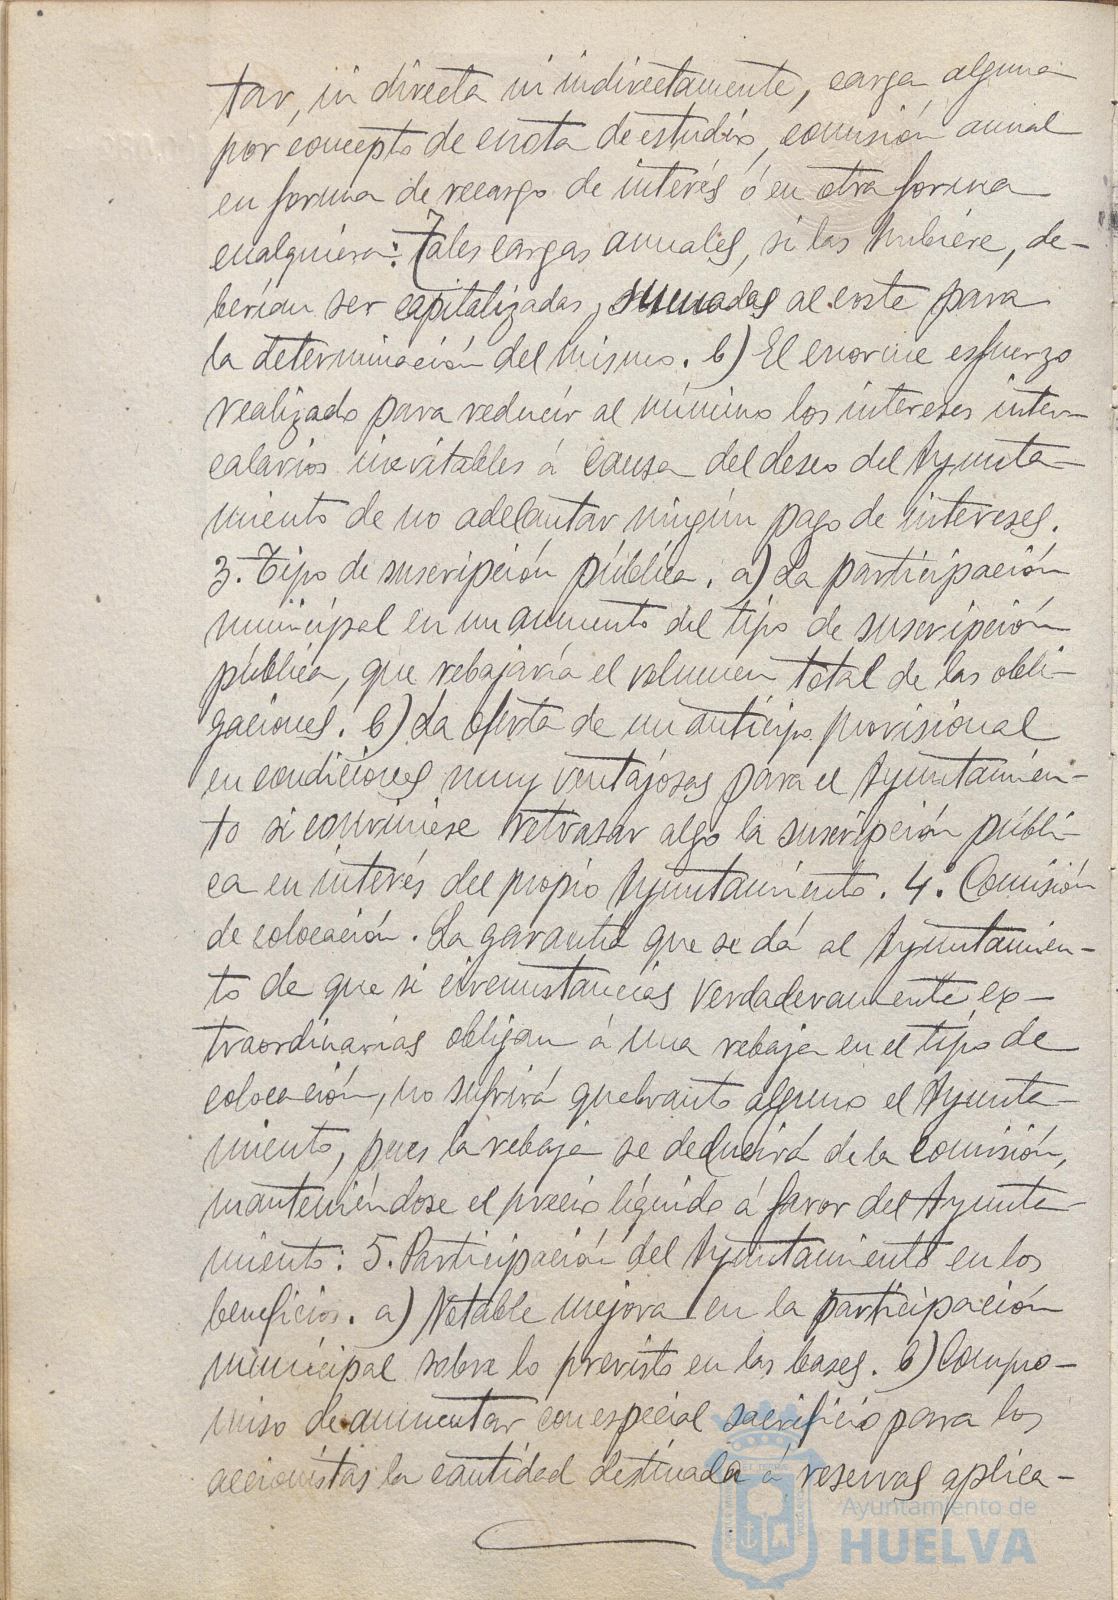 tar, ni directa ni indirectamente, carga alguna
por concepto de cuota de estudio, comisión anual
en forma de recargo de interés ó en otra forma
cualquiera: Tales cargas anuales, si las hubiere, de-
berían ser capitalizadas y sumadas al coste para
la determinación del mismo. b) El enorme esfuerzo
realizado para reducir al mínimo los intereses inter-
calarios inevitables á causa del deseo del Ayunta-
miento de no adelantar ningún pago de intereses.
3. Tipo de suscripción pública. a) La participación
municipal en un aumento del tipo de suscripción
pública, que rebajaría el volumen total de las obli-
gaciones. b) La oferta de un anticipo provisional
en condiciones muy ventajosas para el Ayuntamien-
to si conviniese retrasar algo la suscripción públi-
ca en interés del propio Ayuntamiento. 4º. Comisión
de colocación. La garantía que se dá al Ayuntamien-
to de que si circunstancias verdaderamente ex-
traordinarias obligan á una rebaja en el tipo de
colocación, no sufrirá quebranto alguno el Ayunta-
miento, pues la rebaja se deducirá de la comisión,
manteniéndose el precio líquido á favor del Ayunta-
miento: 5. Participación del Ayuntamiento en los
beneficios. a) Notable mejora en la participación
municipal sobre lo previsto en las bases. b) Compro-
miso de aumentar con especial sacrificio para los
accionistas la cantidad destinada á reservas aplica-
Ayuntamiento de
HUELVA